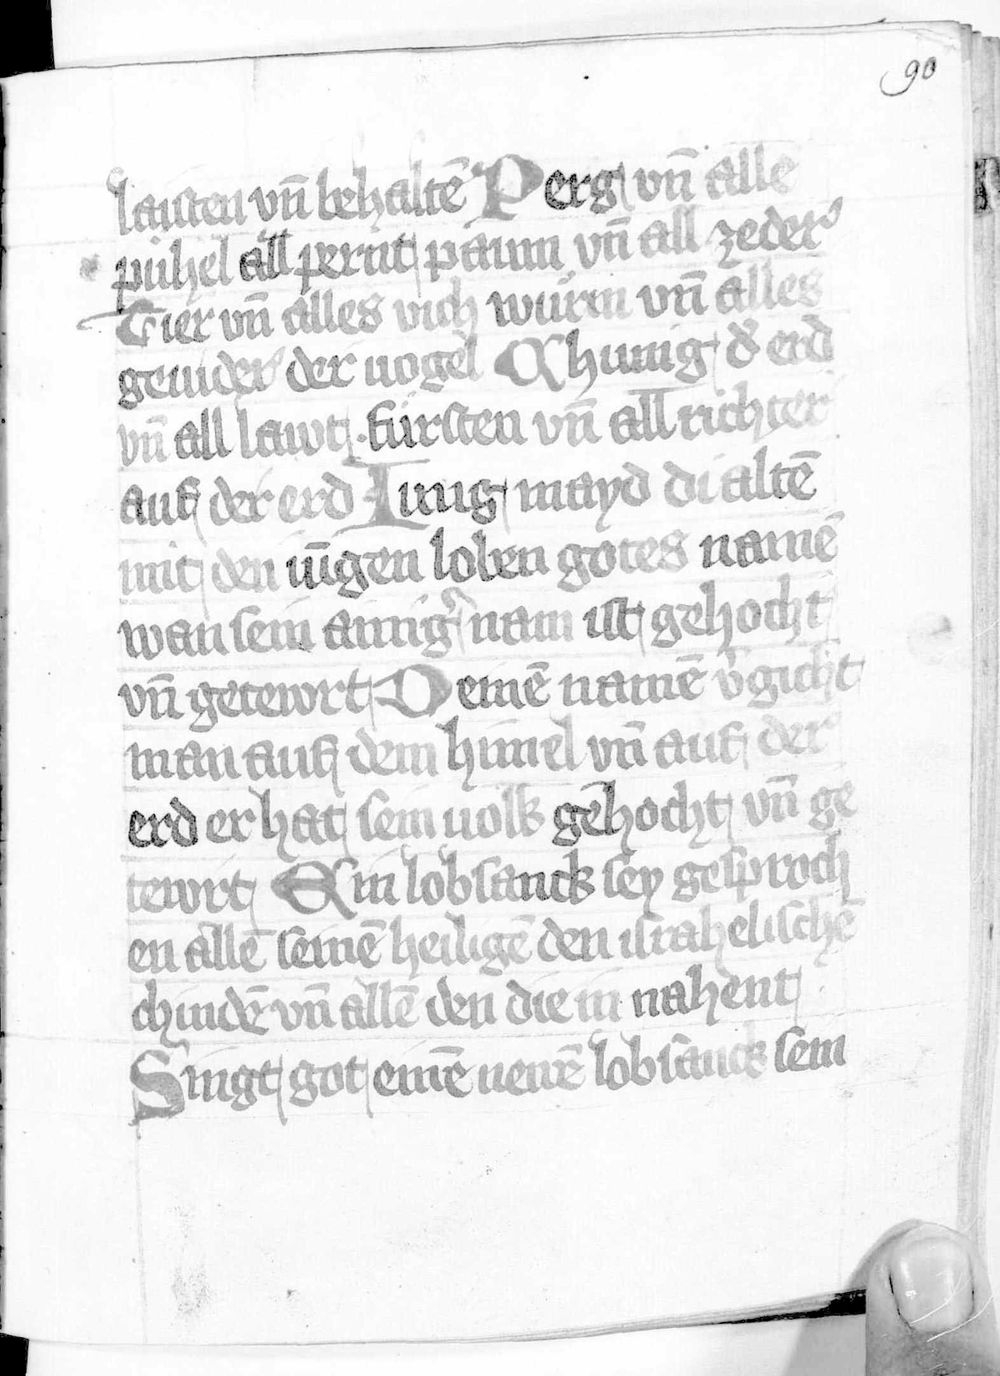 90
laisten vn̄ behaltē Perg vn̄ alle
pühel all pernt paum vn̄ all zeder
Tier vn̄ alles vich würm vn̄ alles
gevider der uogel Chunig d' erd
vn̄ all lawt fürsten vn̄ all richter
auf der erd Iung mayd di altē
mit den iūgen loben gotes namē
wan sein ainig' nam ist gehocht
vn̄ getewrt Deinē namē v'gicht
man auf dem himel vn̄ auf der
erd er hat sein uolk gehocht vn̄ ge
tewrt Ein lobsanck sey gesproch
en allē seinē heiligē den israhelischē
chindē vn̄ allē den die in nahent
Singt got einē neuē lobsanck sein